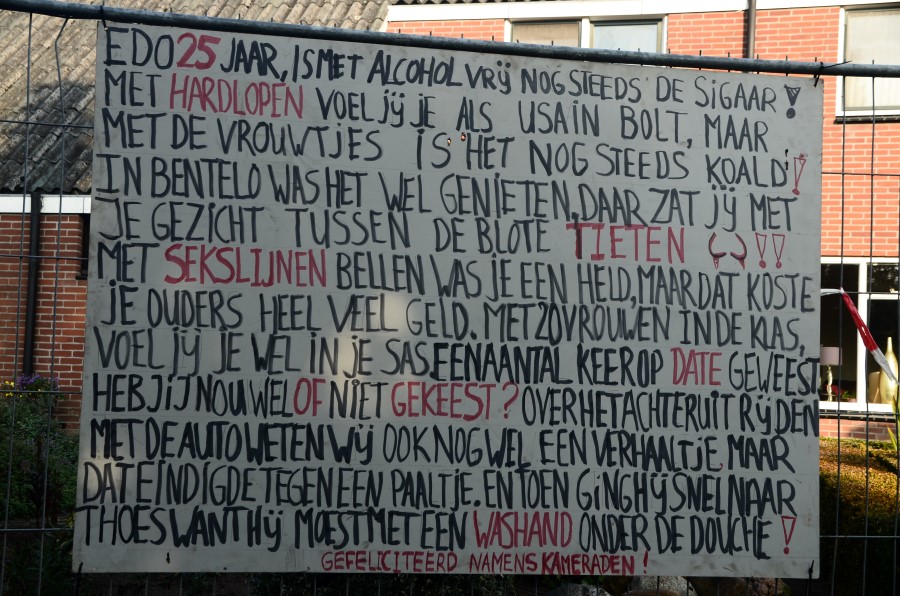 EDO 25 JAAR, IS MET ALCOHOL VRIJ NOG STEEDS DE SIGAAR!
MET HARDLOPEN VOEL JIJ JE ALS USAIN BOLT, MAAR
MET DE VROUWTJES IS HET NOG STEEDS KOALD'!
IN BENTELO WAS HET WEL GENIETEN, DAAR ZAT JIJ MET
JE GEZICHT TUSSEN DE BLOTE TIETEN !!
MET SEKSLIJNEN BELLEN WAS JE EEN HELD, MAAR DAT KOSTE
JE OUDERS HEEL VEEL GELD. MET ZO VROUWEN IN DE KLAS,
VOEL JIJ JE WEL IN JE SAS EEN AANTAL KEER OP DATE GEWEEST
HEB JIJ NOU WEL OF NIET GEKEEST? OVER HET ACHTERUIT RIJDEN
MET DE AUTO WETEN WIJ OOK NOG WEL EEN VERHAALTJE, MAAR
DAT EINDIGDE TEGEN EEN PAALTJE. EN TOEN GING HIJ SNEL NAAR
THOES WANT HIJ MOEST MET EEN WASHAND ONDER DE DOUCHE!
GEFELICITEERD NAMENS KAMERADEN!